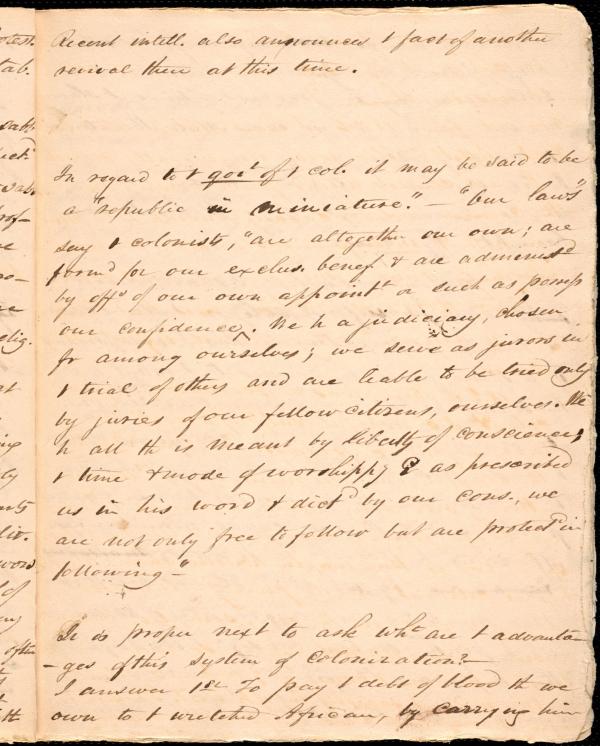 otest.
tab.
Recent intell. also announces t fact of another
revival there at this time.
In regard to t gov.t of t col. it may be said to be
a "republic in miniature." — "Our laws"
say t colonists, "are altogether our own; are
form.d for our exclus. benef. & are administ.d
by off.s of our own appoint.t or such as possess
our confidence. We h a judiciary, chosen
fr among ourselves; we serve as jurors in
t trial of others and are liable to be tried only
by juries of our fellow citizens, ourselves. We
h all th is meant by liberty of conscience;
t time & mode of worshipp.g G as prescribed
us in his word & dict.d by our cons., we
are not only free to follow but are protect.d in
following —"
It is proper next to ask wh.t are t advanta-
-ges of this system of colonization? —
I answer 1st To pay t debt of blood th we
own to t wretched African, by carrying him